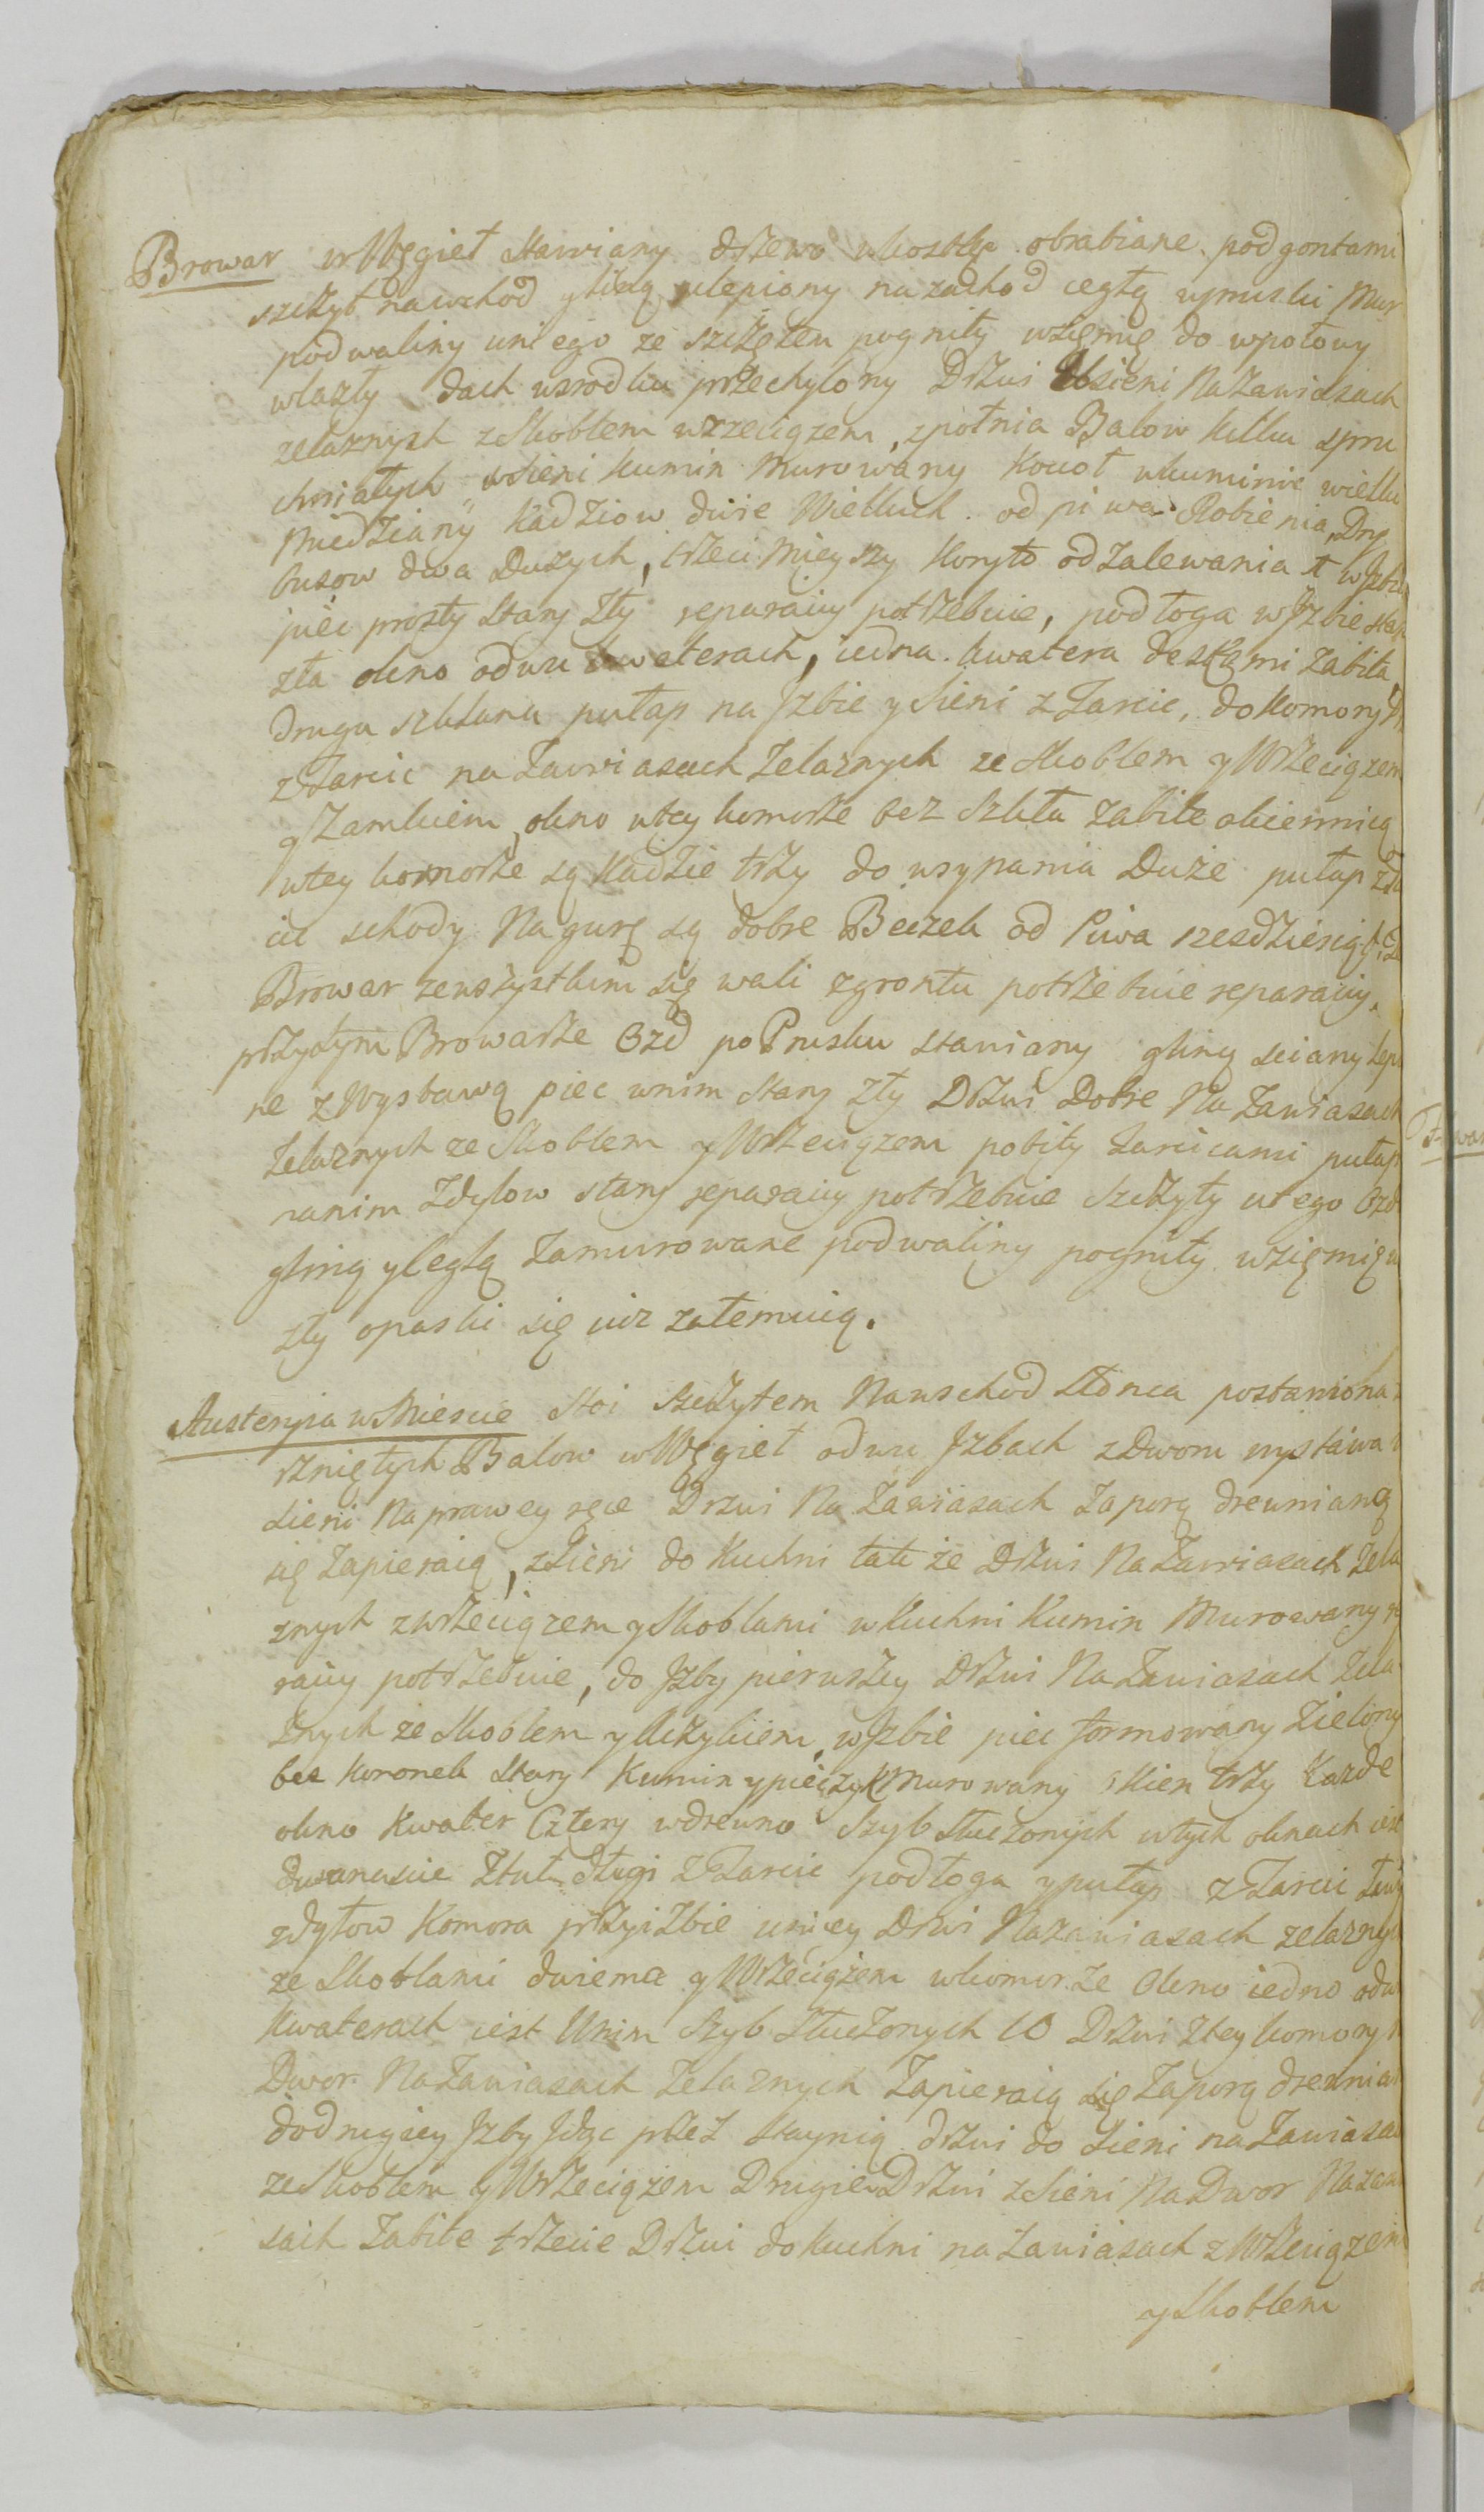 Browar w Węgieł stawiany drzewo wkostkę obrabiane pod gontami
szczyt nawschod gliną ulepiony nazachod cegłą wpruski Mur
podwaliny uniego ze szczętem pogniły wziemię do wpołowy
wlazły dach wsrodku przechylony Drzwi Usieni Nazawiasach
zelaznych z Skoblem wrzeciązem, zpołnia Balow kilku spru
chniałych wsieni kumin Murowany Kocioł wkuminie wielki
Miedziany Kadziow dwie Wielkich od piwa Robienia, Dry
busow dwa Duzych, trzeci Mieyszy Koryto od Zalewania
piec prosty stary zły reparaiiy potrzebuie, podłoga w Jzbie
zła okno odwu kwaterach, iedna kwatera deskami Zabita
Druga szklana pułap na Jzbie y Sieni z Tarcic, do Komory
z Tarcic na Zawiasach Zelaznych ze Skoblem y Wrzeciązem
y Zamkiem, okno wtey komorze bez Szkła Zabite okiennicą
wtey komorze są Kadzie trzy do wsypania Duże pułap
schody Nagurę są dobre Beczek od Piwa szesdziesiąt
Browar zewszystkim się wali zgrontu potrzebuie reparaiiy,
przytym Browarze Ozd po Prusku stawiany gliną sciany lepio
ne z Wystawą piec wnim stary zły Drzwi Dobre Na Zawiasach
Zelaznych ze Skoblem y Wrzeciązem pobity Tarcicami pułap
nanim Zdylow stary reparaiiy potrzebuie Szczyty utego Ozd
gliną y Cegłą Zamurowane podwaliny pogniły wziemię
zły opaski się
Austeryia w Miescie Stoi szczytem Nawschod Słonca postawiona
rzniętych Balow w Węgieł odwu Jzbach z Dwom wystawa
Sieni Naprawey ręce Drzwi Na Zawiasach Zaporą drewnianą
się Zapieraią, z Sieni do Kuchni tak ze Drzwi Na Zawiasach Zela
znych z wrzeciązem y Skoblami w Kuchni Kumin Murowany
raiiy potrzebuie, do Jzby pierwszey Drzwi Na Zawiasach Zela
znych ze Skoblem y Kliczykiem, w Jzbie piec formowany Zielony
bez koronek stary Kumin y pieczyk Murowany okien trzy Kazde
okno Kwater Cztery wdrewno Szyb Stłuczonych wtych oknach iest
dwanascie Stuł długi z Tarcic podłoga y pułap z Tarcic
zdyłow Komora przyizbie uniey Drzwi Nazawiasach zelaznych
ze Skoblami dwiema y Wrzeciązem wkomorze Okno iedno odwu
Kwaterach iest Unim Szyb Stłuczonych 10 Drzwi Ztey komory
Dwor Na Zawiasach Zelaznych Zapieraią się Zaporą drewnian
do drugiey Jzby Jdąc przez Staynią drzwi do Sieni na Zawiasa
ze Skoblem y Wrzeciązem Drugie Drzwi z Sieni Na Dwor
sach Zabite trzecie Drzwi do kuchni na Zawiasach z Wrzeciązem
y Skoblem